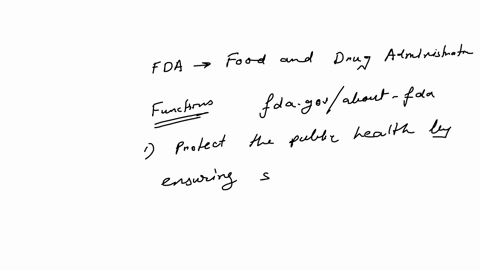 FDA → Food and Drug Administratn
Functions fda.gov/about-fda
1) Protect the public health by
ensuring s